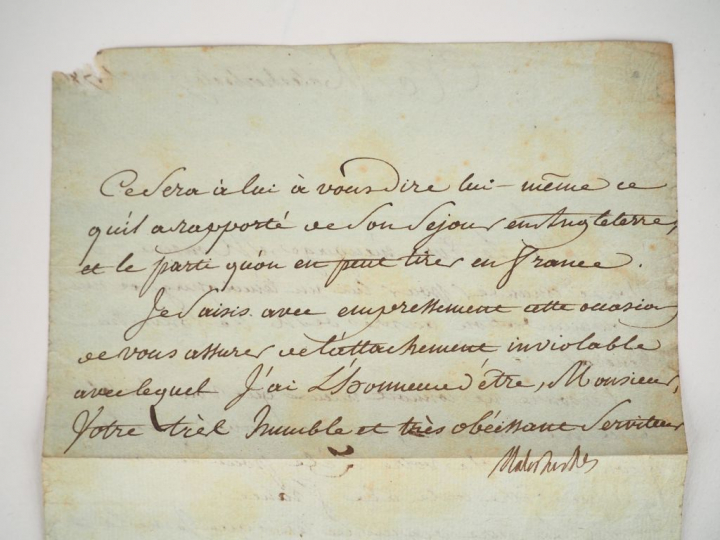 Ce sera à lui à vous dire lui-même ce
qu'il a rapporté de son séjour en Angleterre,
et le parti qu'on en peut tirer en france.
Je saisis avec empressement cette occasion
de vous assurer de l'attachement inviolable
avec lequel J'ai L'honneur d'être, Monsieur,
Votre très humble et très obéissant serviteur
Malesherbes